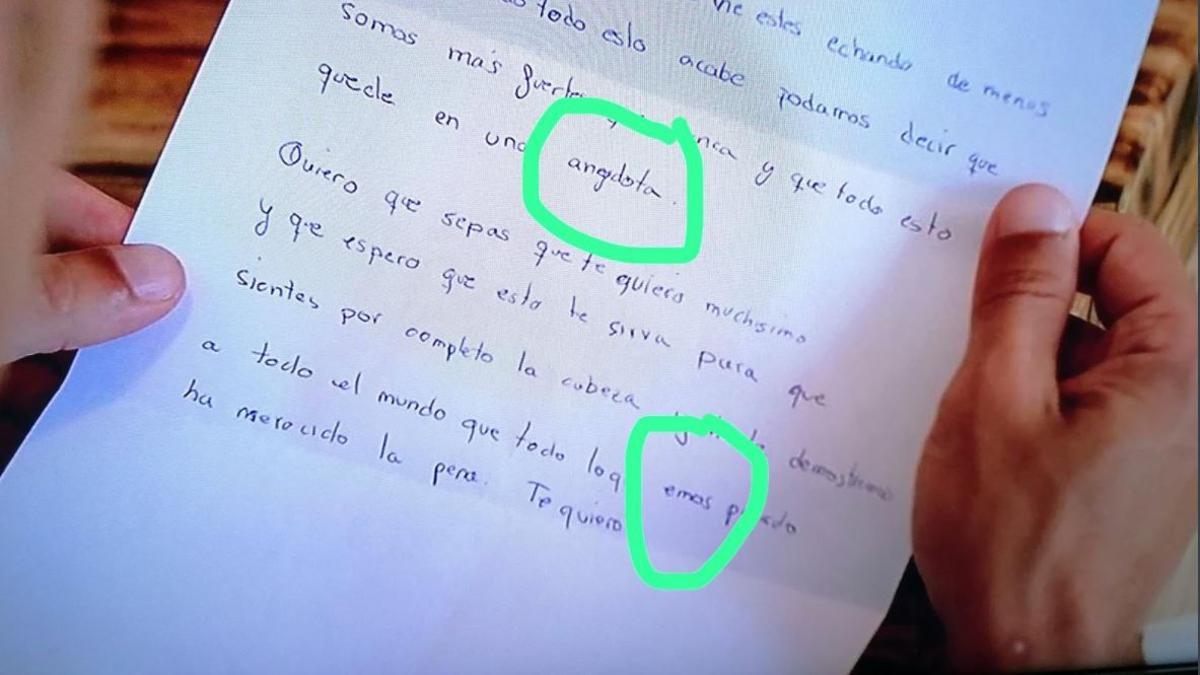 estes echando de menos
todo esto acabe podamos decir que
somos más y que todo esto
quede en una angdota.
Quiero que sepas que te quiero muchisimo
y que espero que esto te sirva para que
sientes por completo la cabeza demostremos
a todo el mundo que todo loq emos
ha merecido la pena. Te quiero